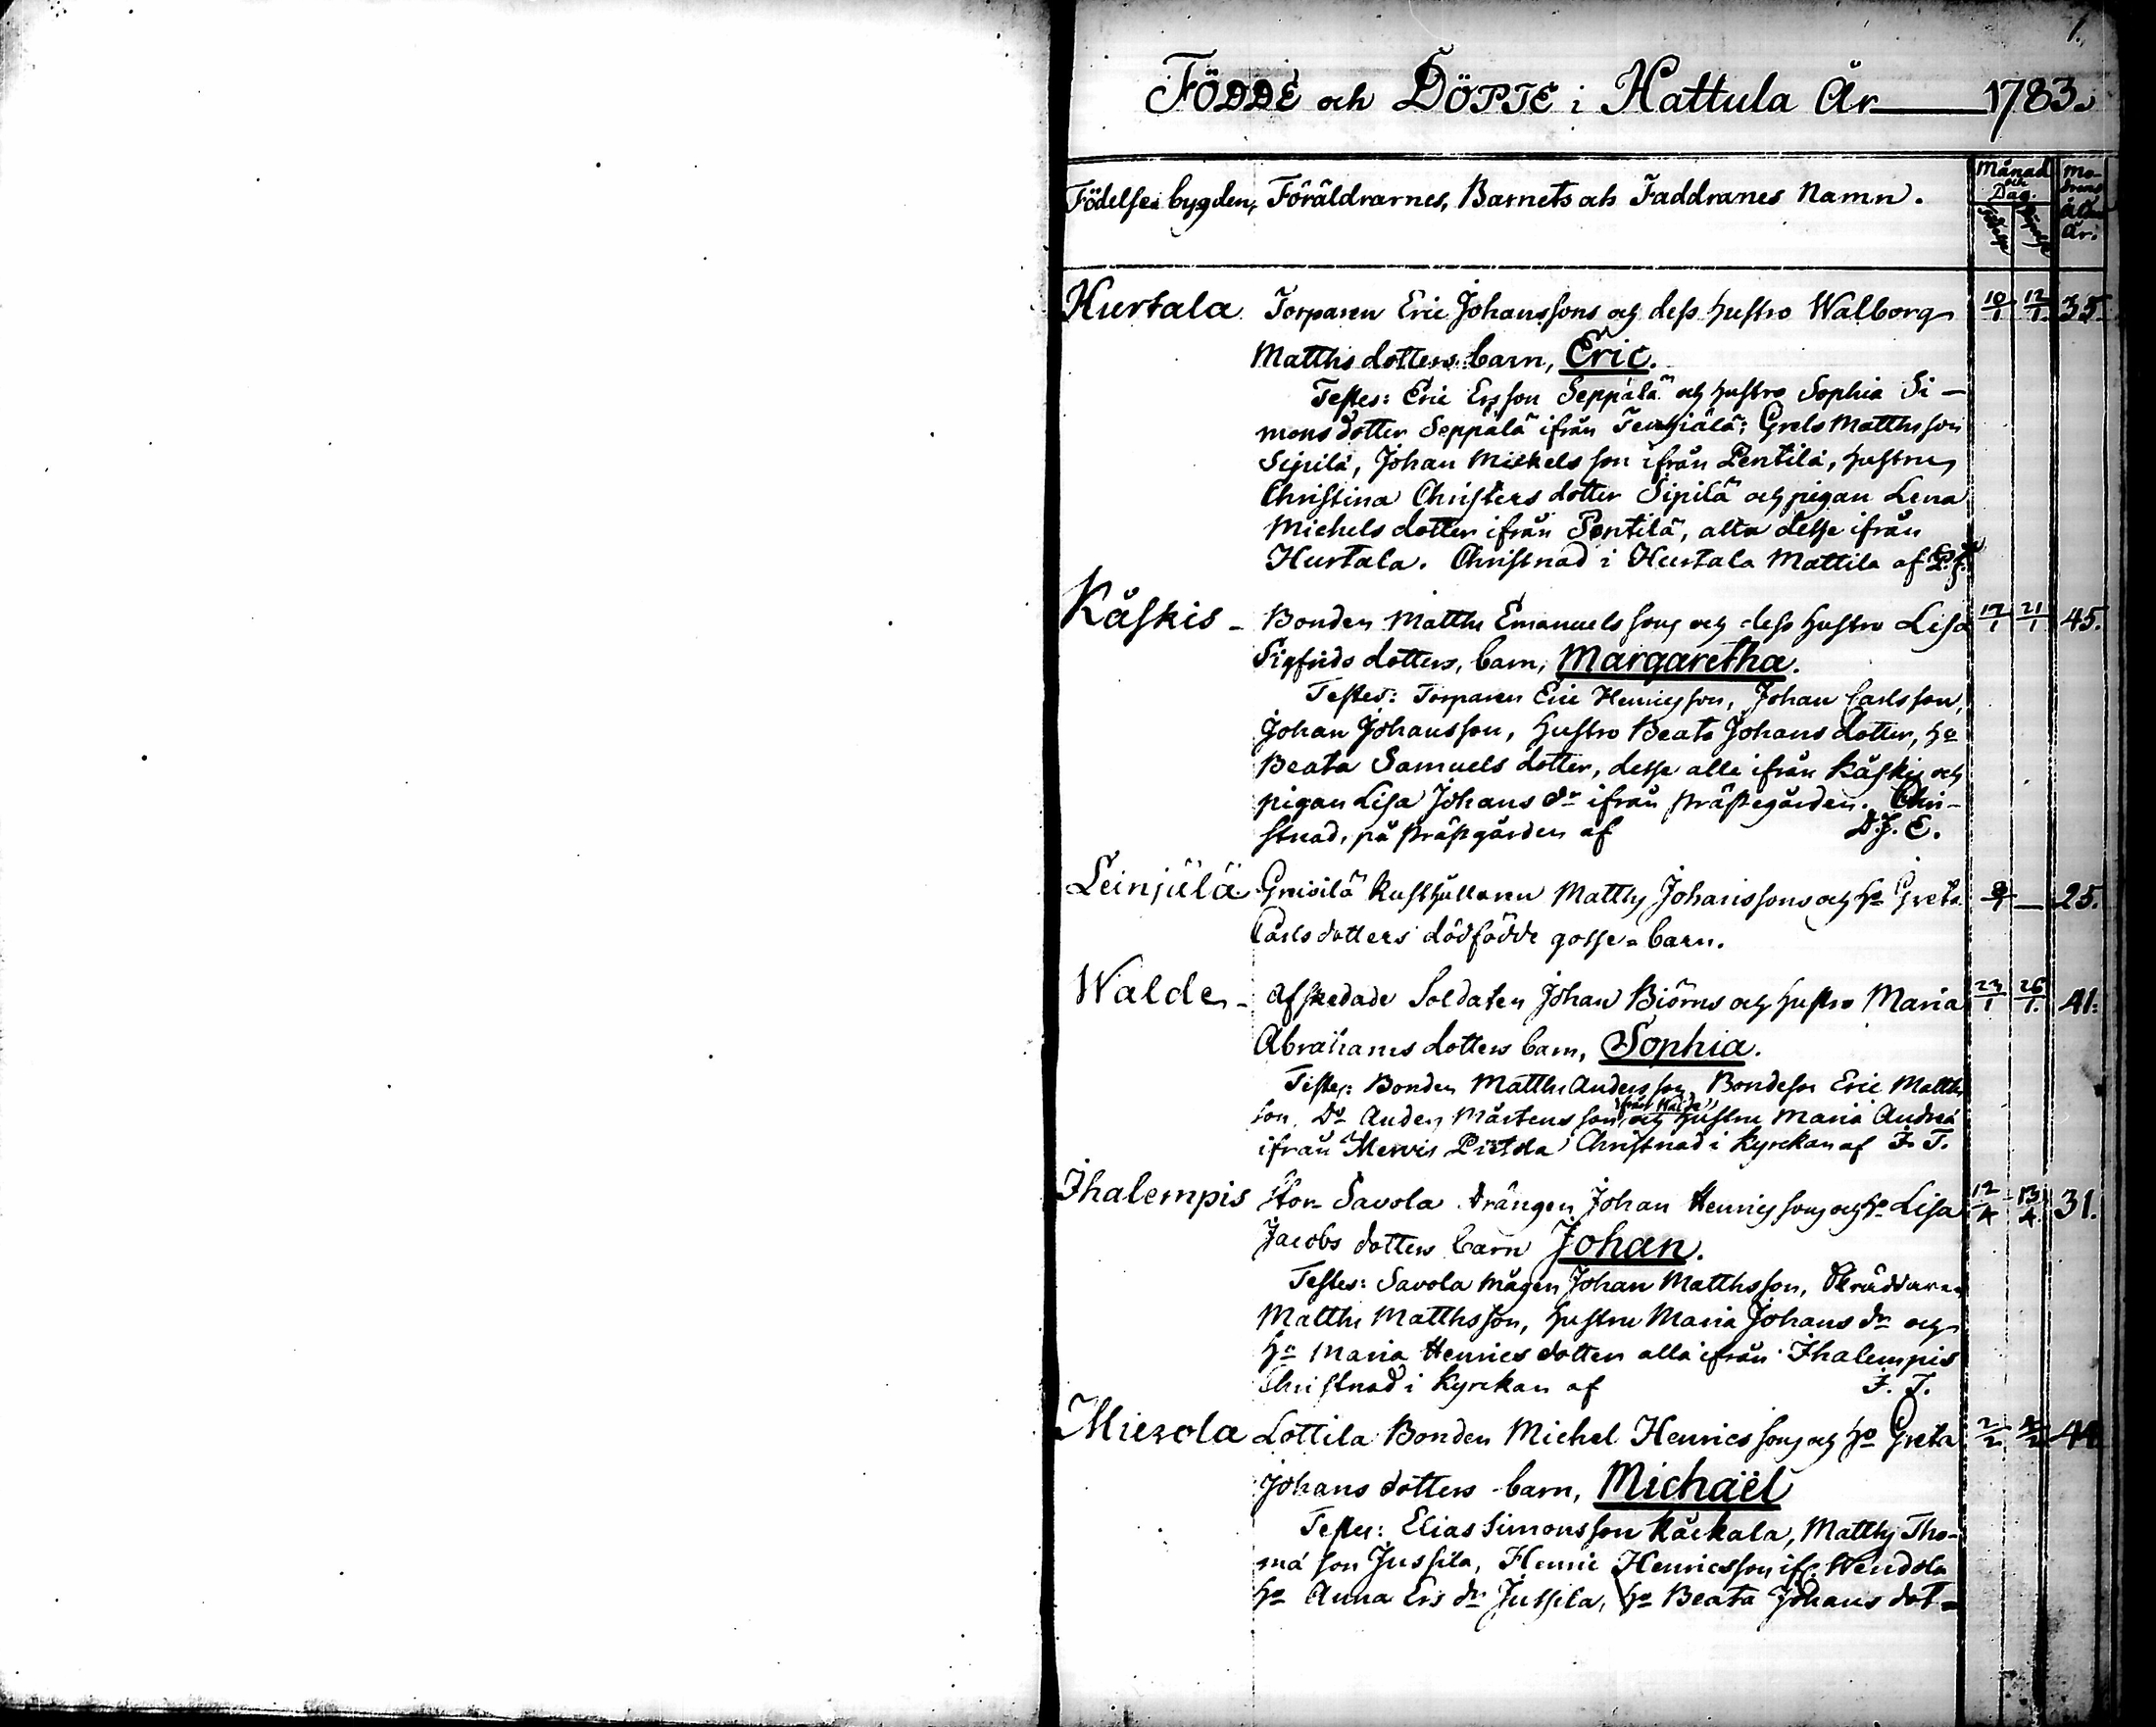 1.
FÖDDE och DÖPTE i Hattula År 1783.
Födelse-bygden, Föräldrarnes, Barnets och Faddranes Namn. Månad och Dag. Modrens ålder År.
Hurtala Torparen Eric Johanssons och dess hustro Walborg 10/1 12/1 35.
Matths dotters barn, Eric.
Testes: Eric Ersson Seppälä och hustro Sophia Si-
mons dotter Seppälä ifrån Tenhiälä; Grels Matthsson
Sipilä, Johan Mickelsson ifrån Pentilä, hustru
Christina Christers dotter Sipilä och pigan Lena
Michels dotter ifrån Pentilä, alla desse ifrån
Hurtala. Christnad i Hurtala Mattila af
Kåskis - Bonden Matths Emanuelssons och dess hustro Lisa 17/1 21/1 45.
Sigfrids dotters, barn, Margaretha.
Testes: Torparen Eric Henricsson, Johan Carlsson,
Johan Johansson, Hustro Beata Johans dotter, ho
Beata Samuels dotter, desse alla ifrån Kåskis och
pigan Lisa Johans dr ifrån prästegården. Chri-
stnad, på prästgården af D.J.E.
Leinjälä Grisilä Rusthållaren Matths Johanssons och ho Greta — 25.
Carls dotters dödfödde gosse-barn.
Walde - Afskedade Soldaten Johan Biörns och hustro Maria 23/1 26/1. 41.
Abrahams dotters barn, Sophia.
Testes: Bonden Matths Andersson, Bondeson Eric Matths
son, Do Anders Mårtensson ifrån Walde, och hustru Maria Andreä
ifrån Mervis Pietola Christnad i Kyrckan af F. T.
Ihalempis Stor Savola drängen Johan Henricssons och ho Lisa 12/1 13/1 31.
Jacobs dotters barn Johan.
Testes: Savola mågen Johan Matthsson, Skräddaren
Matths Matthsson, hustru Maria Johans dr och
ho Maria Henrics dotter alla ifrån Ihalempis
Christnad i Kyrckan af F. T.
Mierola Lottila Bonden Michel Henricssons och ho Greta 2/2 44
Johans dotters barn, Michaël
Testes: Elias Simonsson Käckälä, Matths Tho-
mä son Jussila, Henric Henricsson ifr. Wendola
ho Anna Ers dr Jussila, ho Beata Johans dot-